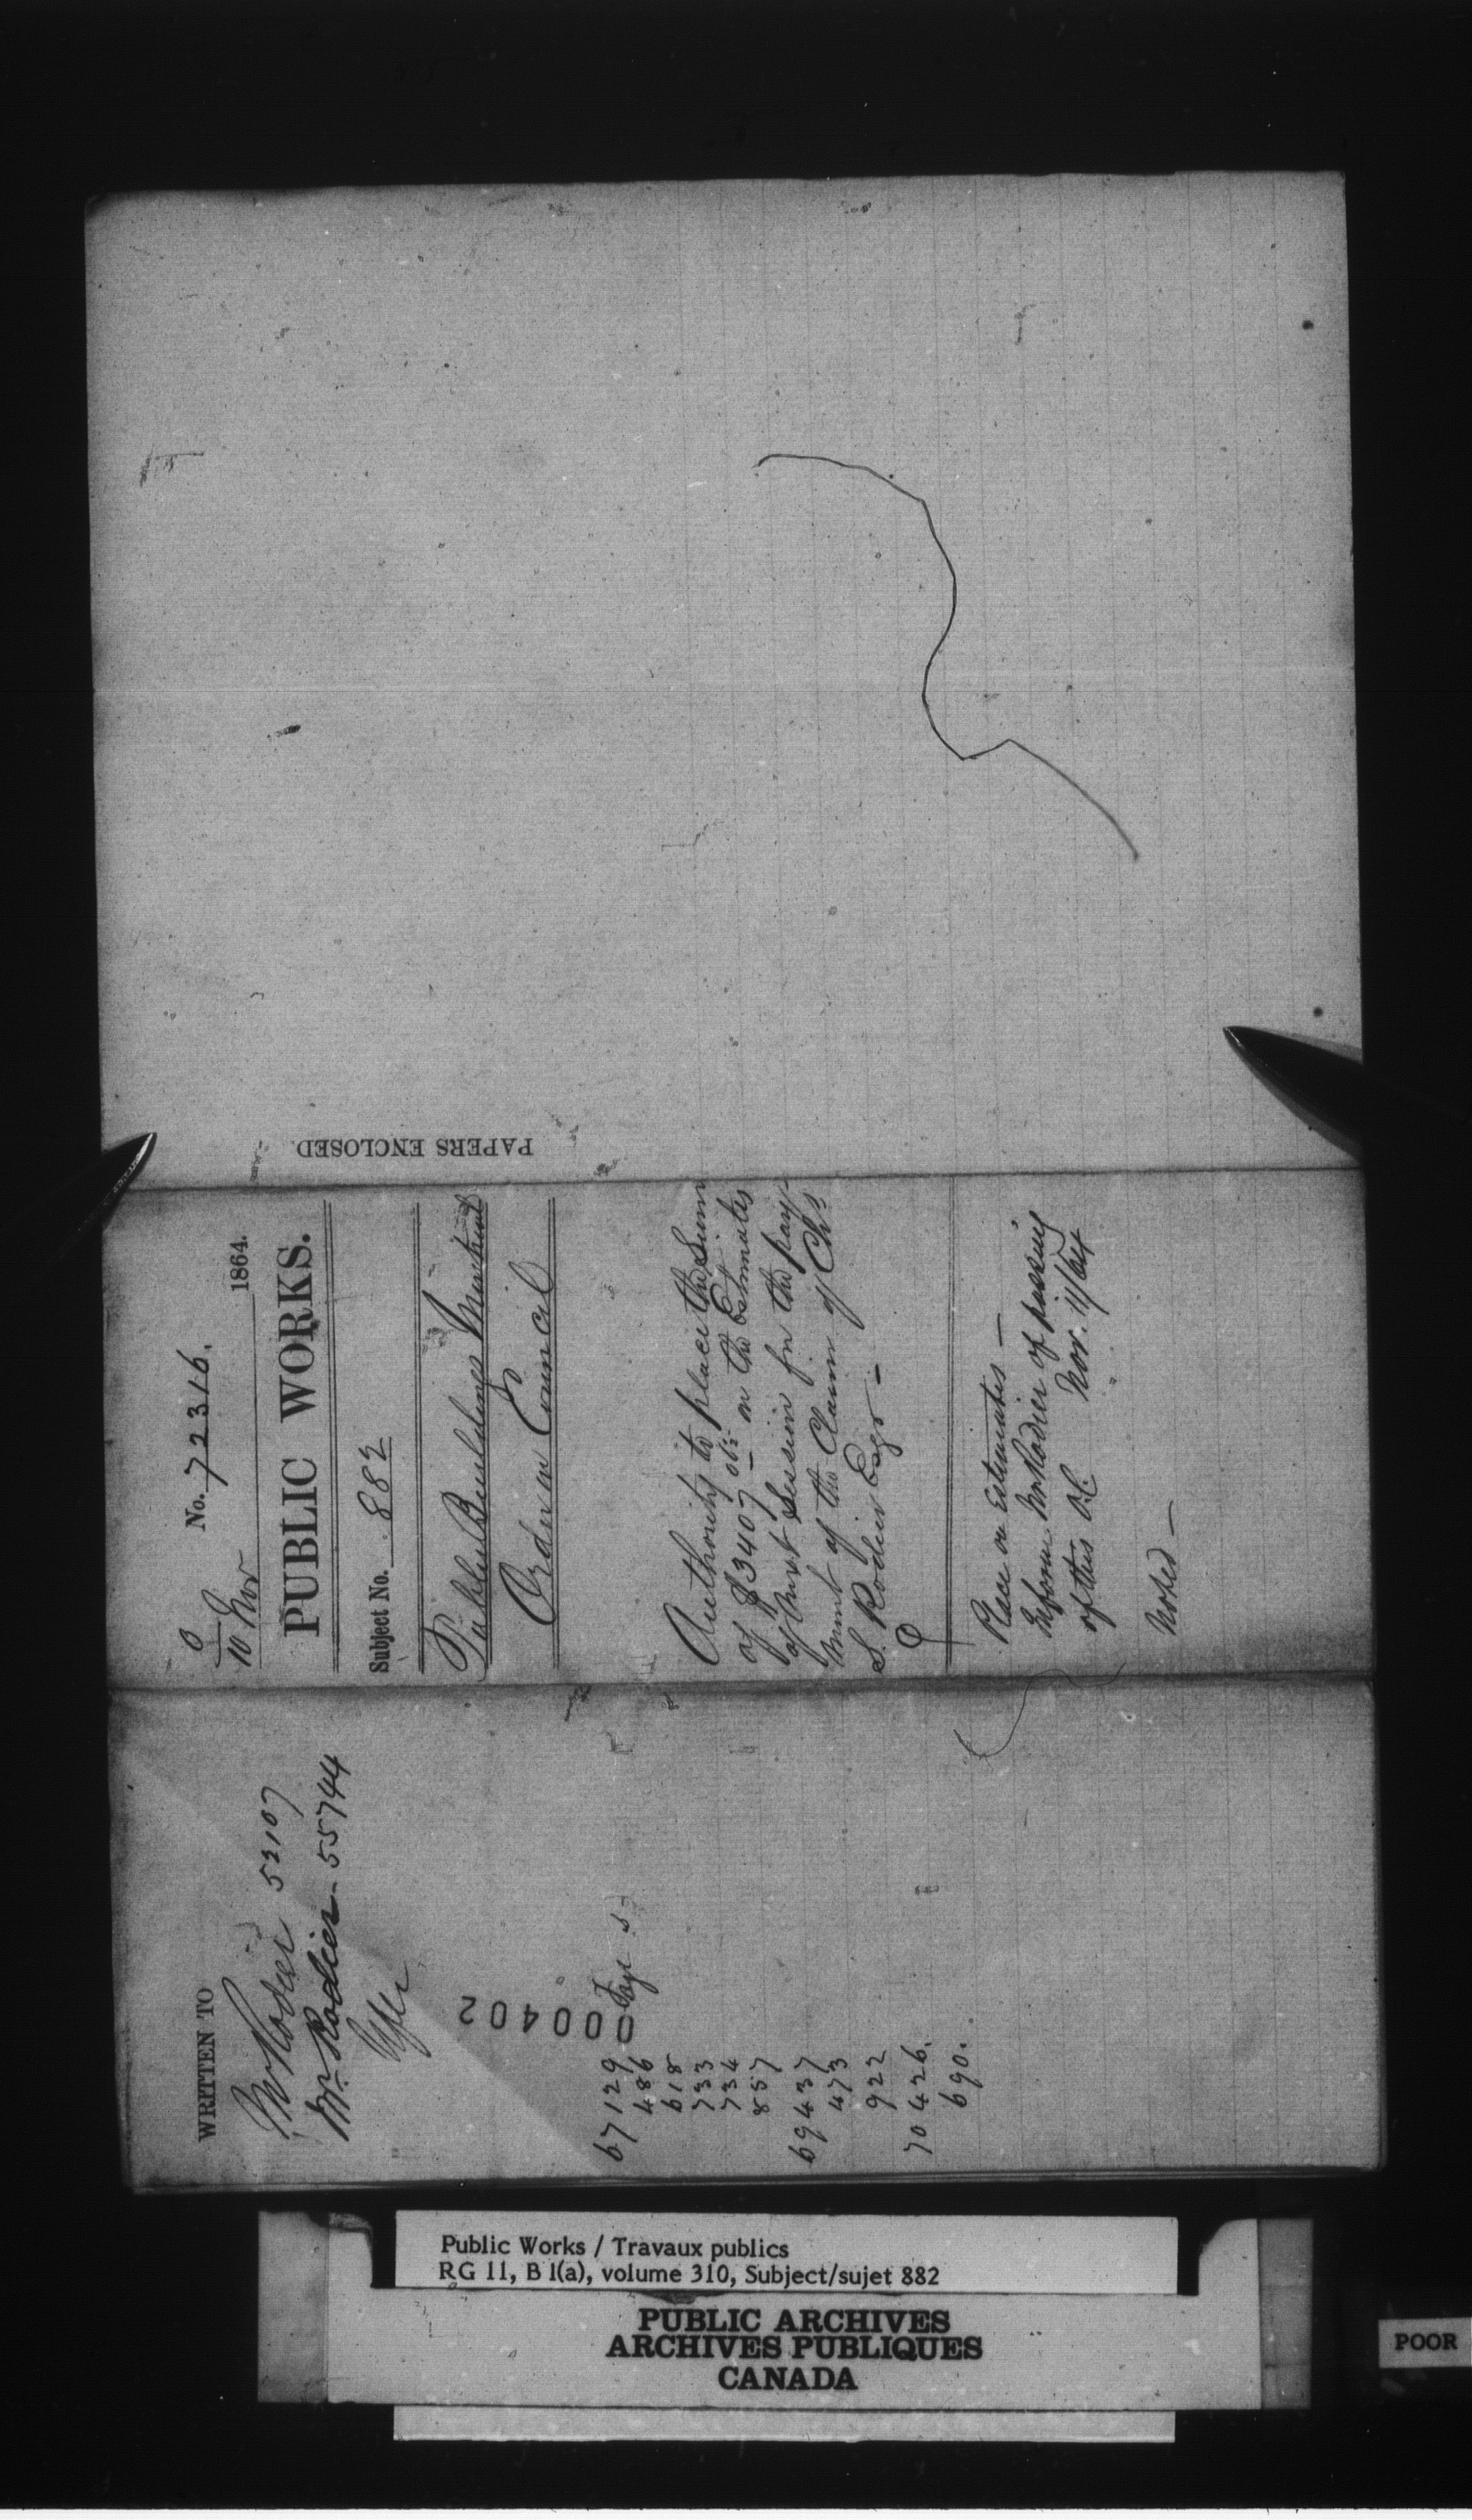 PAPERS ENCLOSED
No. 72316.
10 Nov 1864.
PUBLIC WORKS.
Subject No. 882
Public Buildings Montreal
Order in Council
Authority to place the Sum
of $3407 on the Estimates
of next Session for the pay-
ment of the Claim of Chs
S. Rodier Esqr –
Place on Estimates –
Inform Mr Rodier of passing
of this O.C. Nov. 11/64
Noted –
WRITTEN TO
Mr Rodier 52107
Mr. Rodier - 55744
000402
67129
486
618
733
734
857
69437
473
922
70426.
690.
Public Works / Travaux publics
RG 11, B 1(a), volume 310, Subject/sujet 882
PUBLIC ARCHIVES
ARCHIVES PUBLIQUES
CANADA
POOR